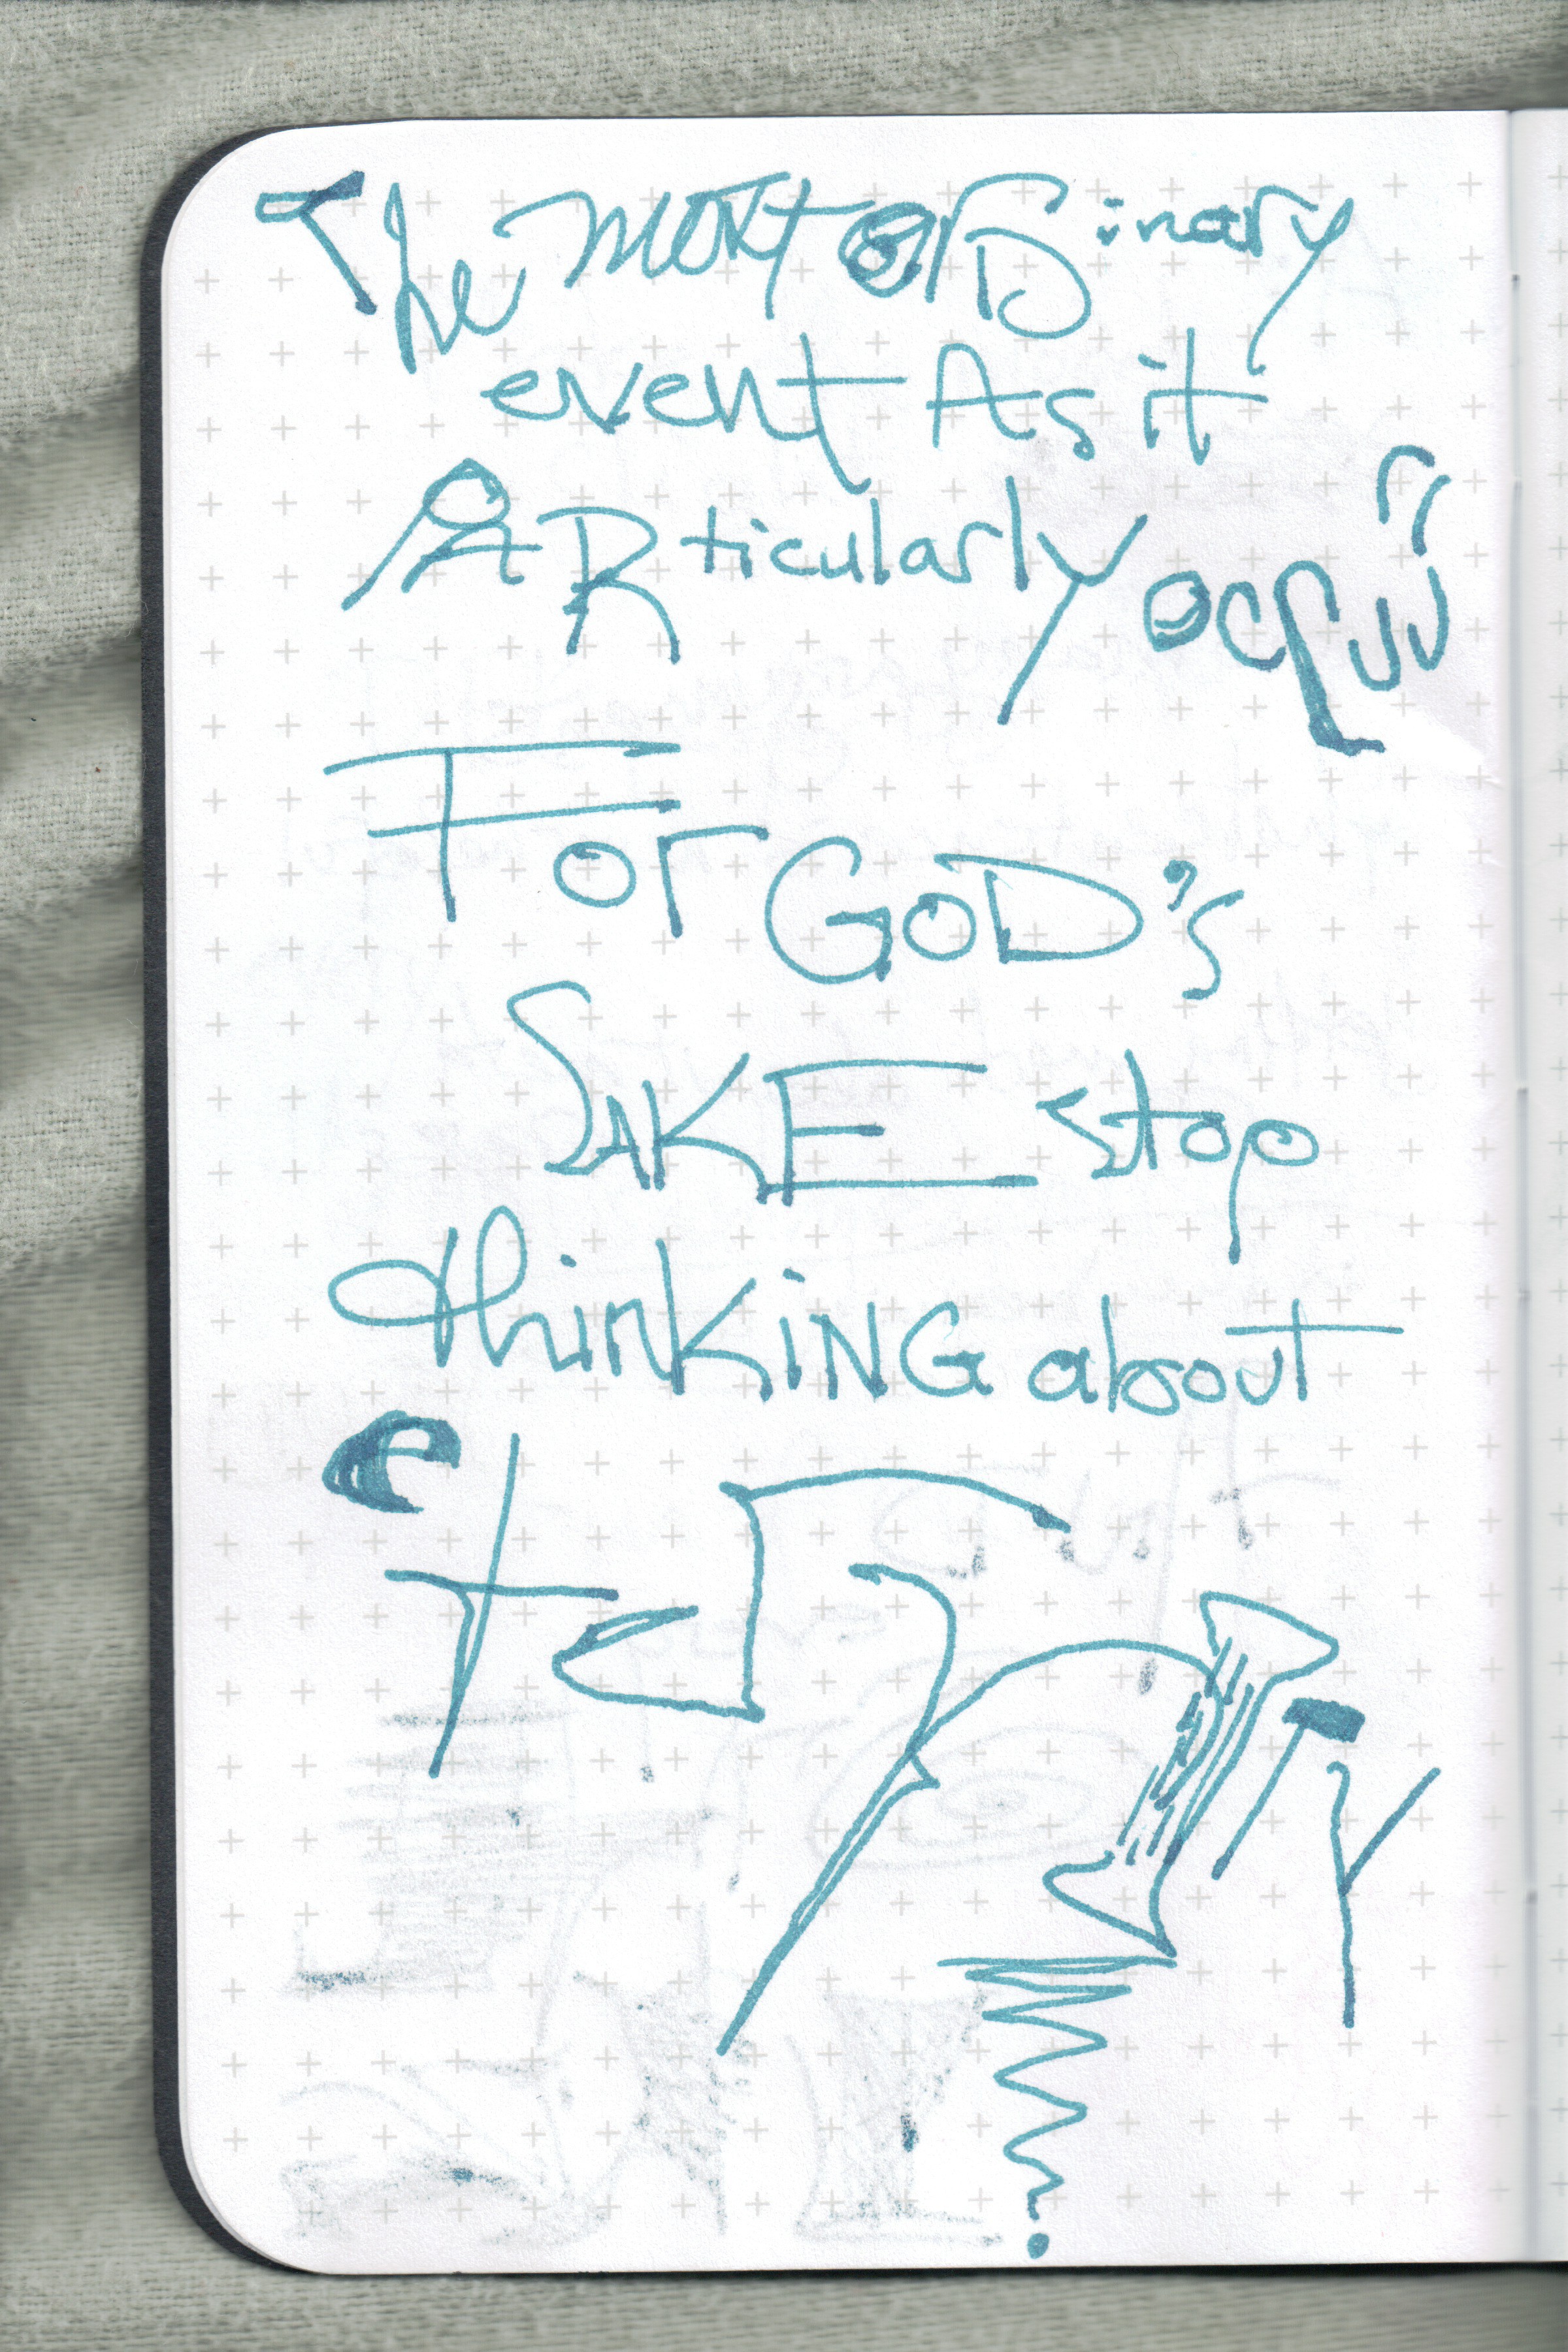 The most orDinary
event As it
PARticularly
For GOD's
SAKE stop
thinKiNG about